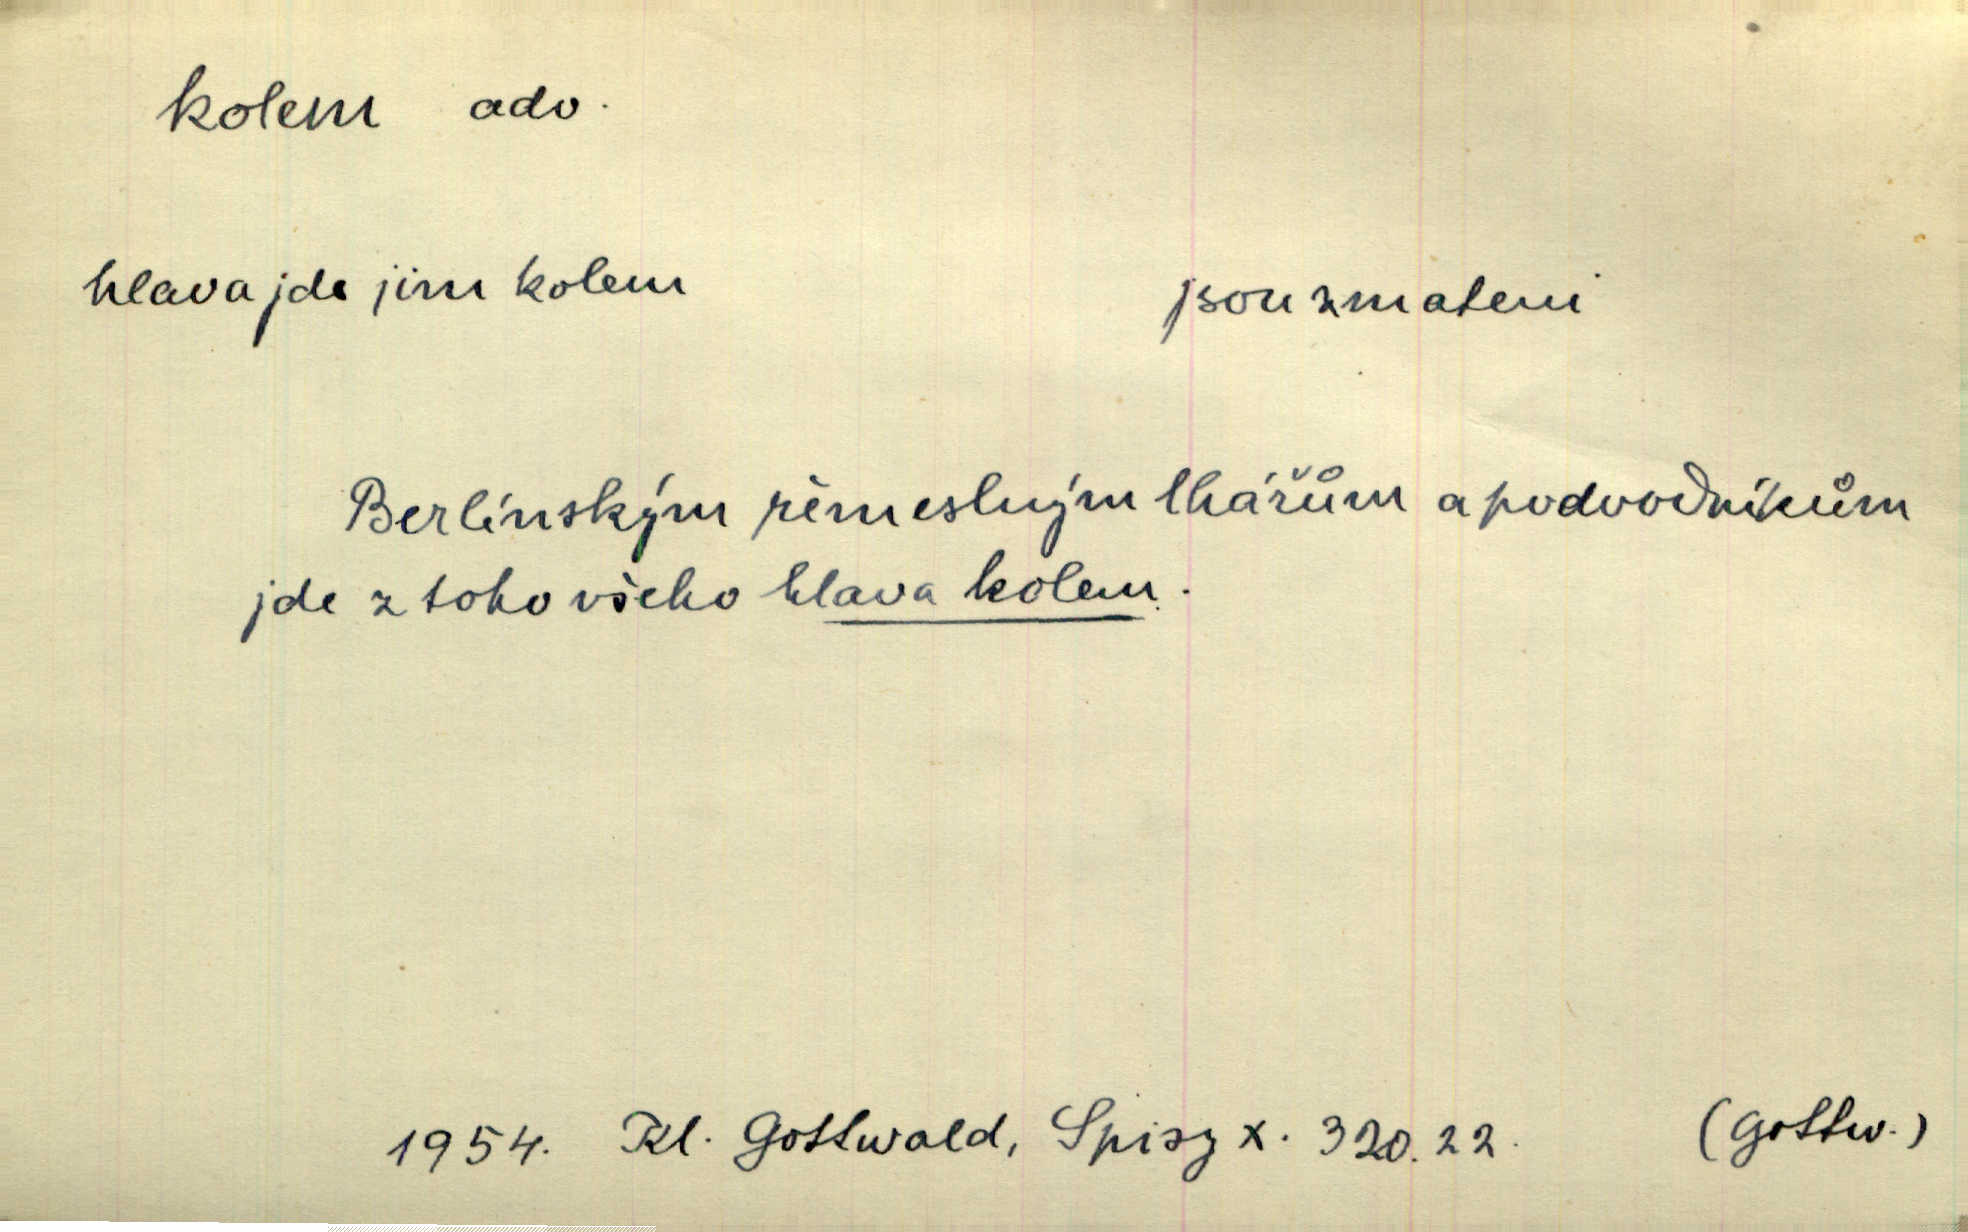 kolem adv.
hlava jde jim kolem jsou zmateni
Berlínským řemeslným lhářům a podvodníkům
jde z toho všeho hlava kolem.
1954. Kl. Gottwald, Spisy X. 320.22. (Gottw.)